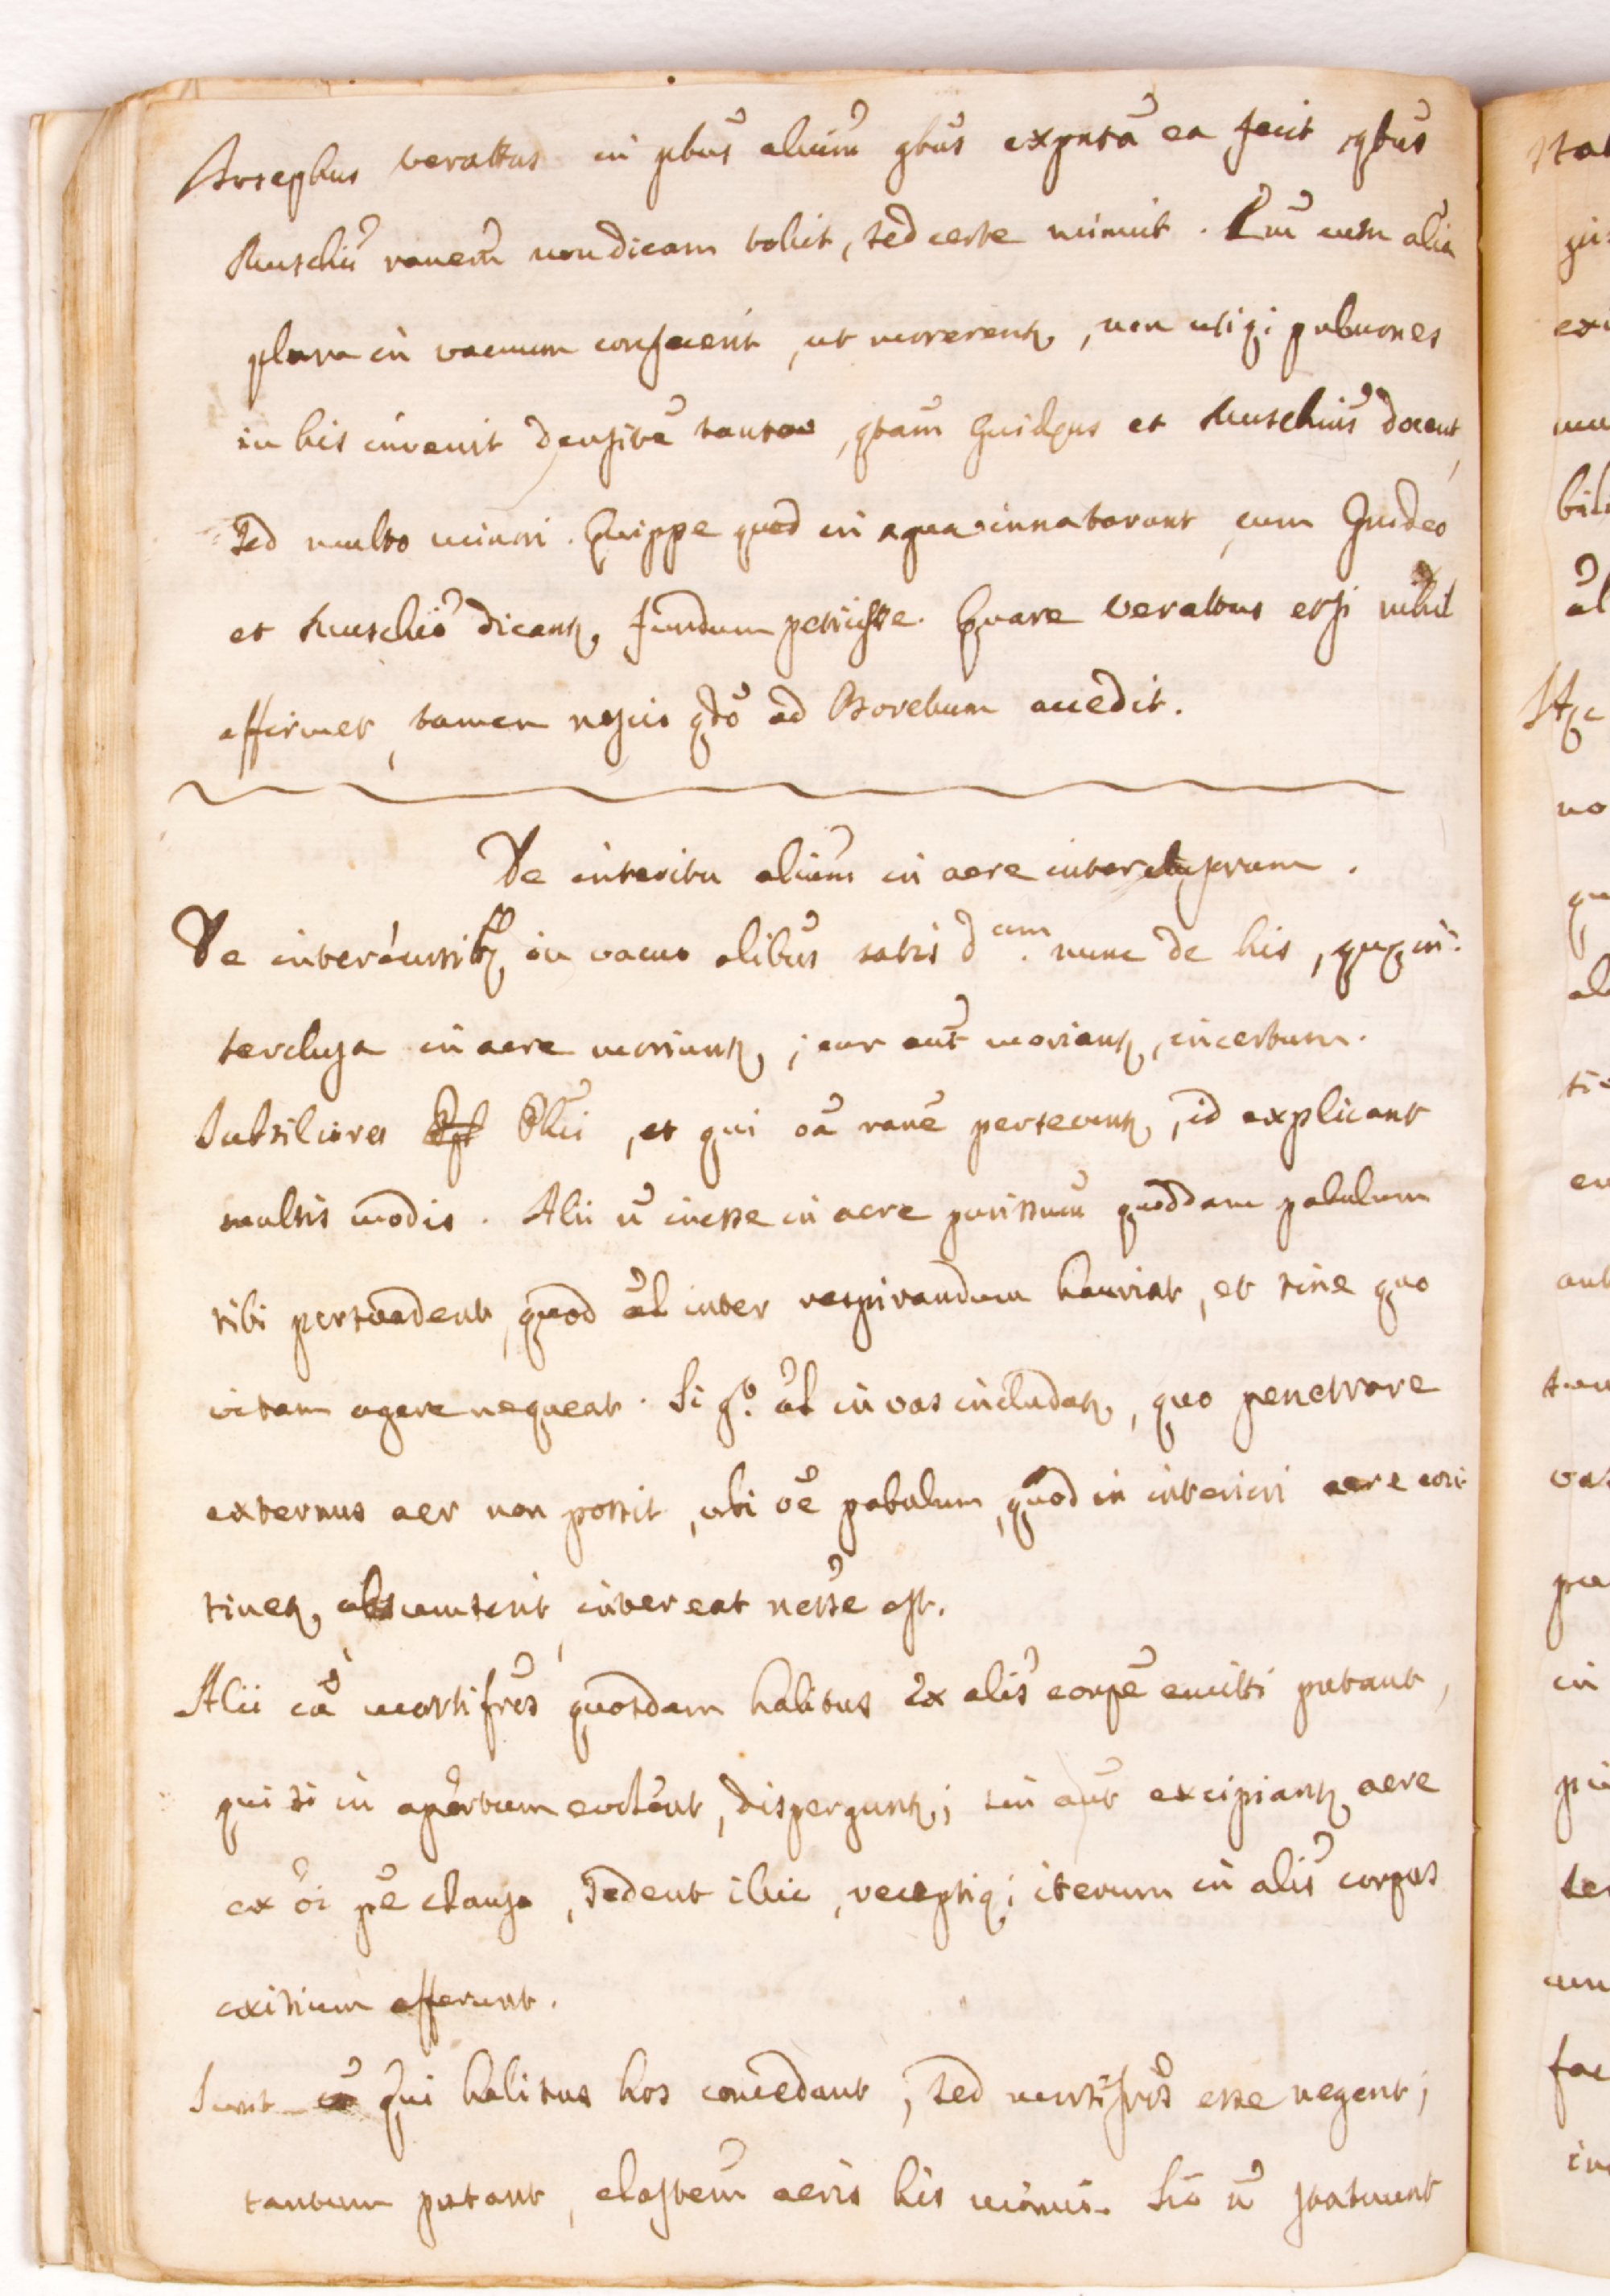 Josephus Verattus in pbus alium gbus expnta ea fecit qbus
Muschii ranem non dicam tolit, sed certe minuit. Cum cum alia
plura in vacuum conjecerit, ut morerentr, non utiq; pulmones
in his invenit densite tanta, qtam Guideus et Muschius docent,
sed multo minori. Quippe quod in aqua innatarunt, cum Guideo
et Muschio dicantr, fundum petiisse. Quare Verattus etsi nihil
affirmet, tamen magis qdo ad Borellum accedit.
De interitu alium in aere interclusorum.
De intereuntibr in vacuo alibus satis dcum. nunc de his, quæ in-
terclusa in aere moriuntr; cur aut moriantr, incertum.
Subtiliores Phii, et qui oa rane persecuntr, id explicant
multis modis. Alii u inesse in aere purissimu quoddam pabulum
sibi persuadent, quod al inter respirandum hauriat, et sine quo
vitam agere nequeat. Si go. al in vas includatr, quo penetrare
externus aer non possit, ubi oe pabulum, quod in interiori aere con-
tinetr, absumserit, intereat nesse est.
Alii ea mortifros quosdam halitus ex alis corpe emitti putant,
qui si in apertum evolent, disperguntr; sin aut excipiantr aere
ex oi pe clauso, sedent illic, receptiq; iterum in alis corpus
exitium afferunt.
Sunt qui halitus hos concedant, sed mortifros esse negent;
tantum putant, elastem aeris his minui. Sic u statuunt